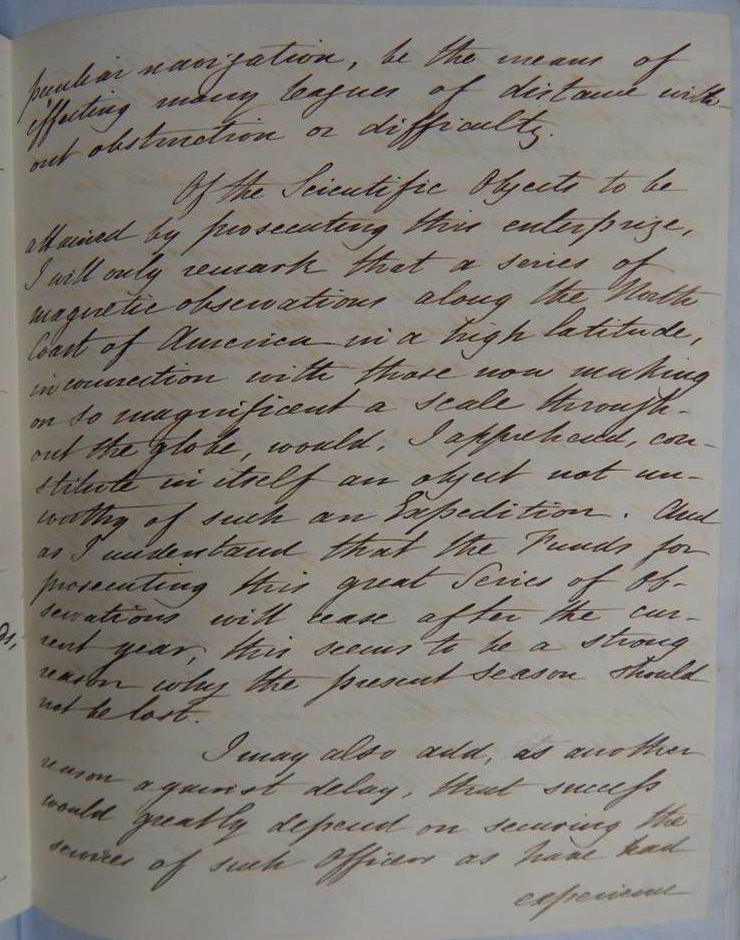 peculiar navigation, be the means of
effecting many leagues of distance with-
out obstruction or difficulty.
Of the Scientific Objects to be
attained by prosecuting this enterprize,
I will only remark that a series of
magnetic observations along the North
Coast of America in a high latitude,
in connection with those now making
on so magnificent a scale through-
out the globe, would, I apprehend, con-
stitute in itself an object not un-
worthy of such an Expedition. And
as I understand that the Funds for
prosecuting this great Series of Ob-
servations will cease after the cur-
rent year, this seems to be a strong
reason why the present season should
not be lost.
I may also add, as another
reason against delay, that success
would greatly depend on securing the
services of such Officers as have had
experience